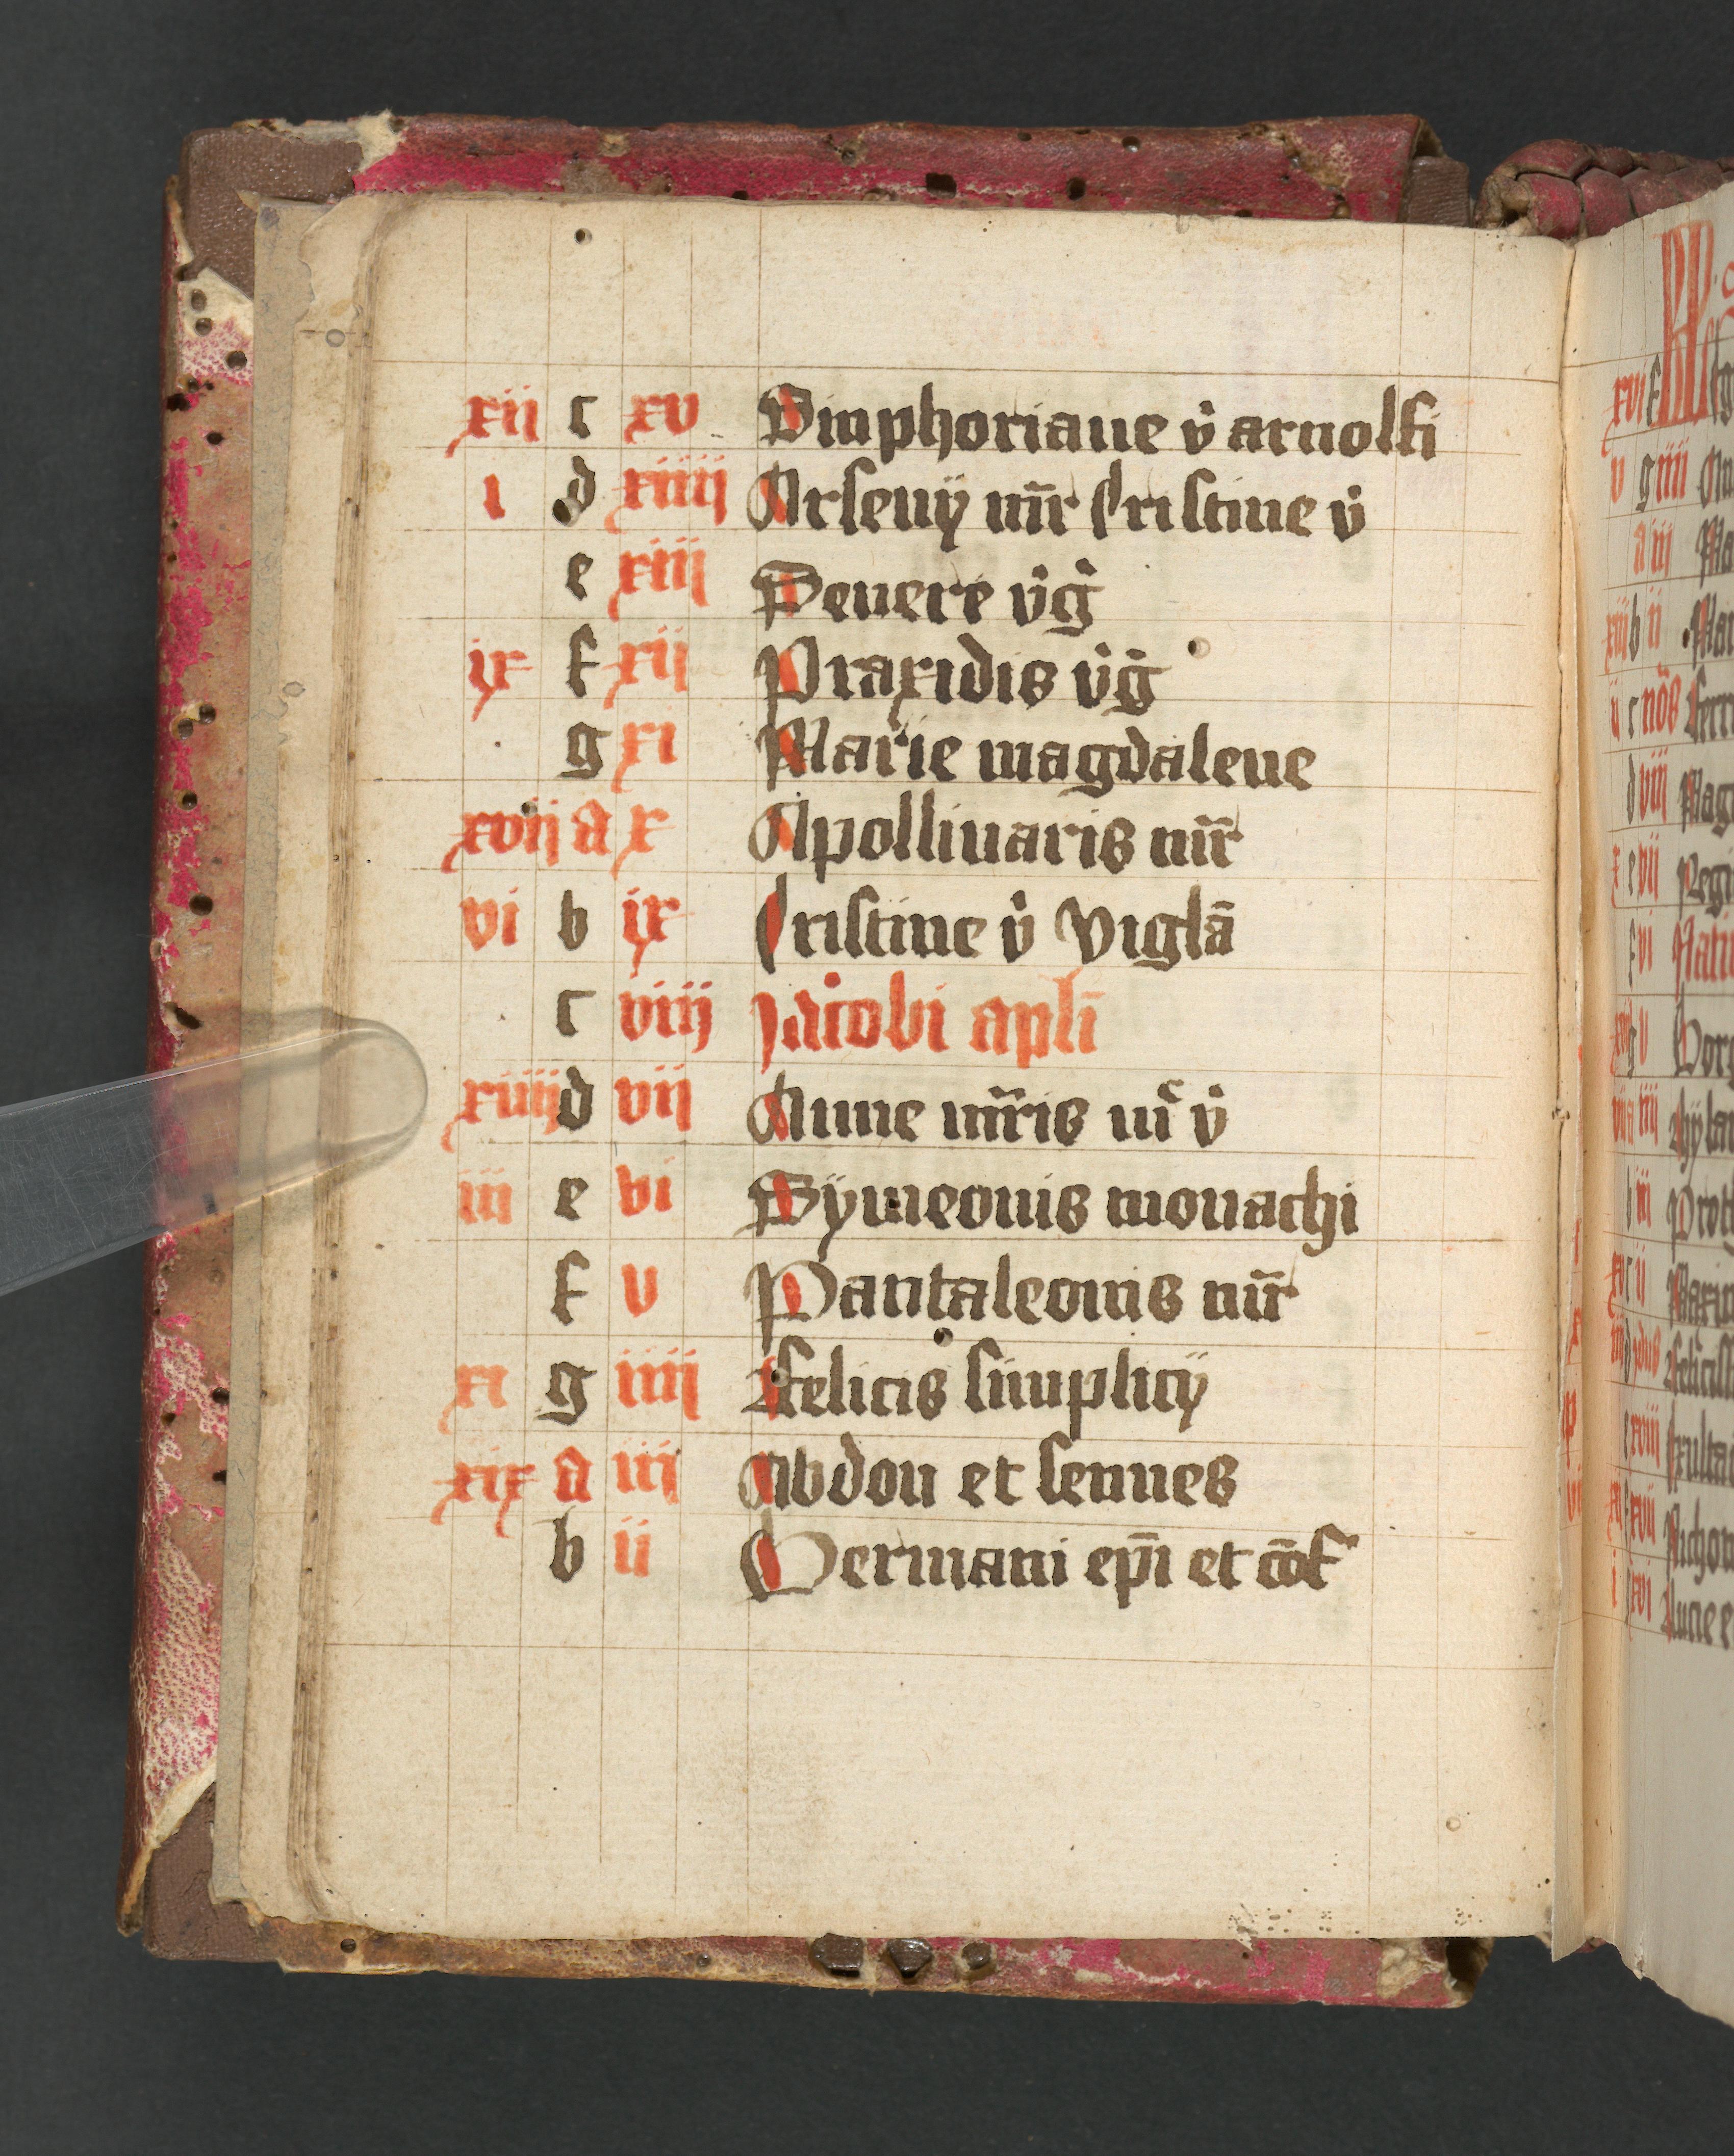 xii c xv Simphoriane v̄ arnolfi
i d xiiii Arsenÿ mr̄ Cristine v̄
e xiii Peuere v̄g̊
ix f xii Praxidis v̄g̊
g xi Marie magdalene
xvii A x Apollinaris mr̄
vi b ix Cristine v̄ Viglā
c viii Jacobi apl̄i
xiiii d vii Anne mr̄is v̄
iii e vi Sÿmeonis monachi
f v Pantaleonis mr̄
xi g iiii Felicis simplicÿ
xix A iii Abdon et sennes
b ii Germani ep̄i et cōf